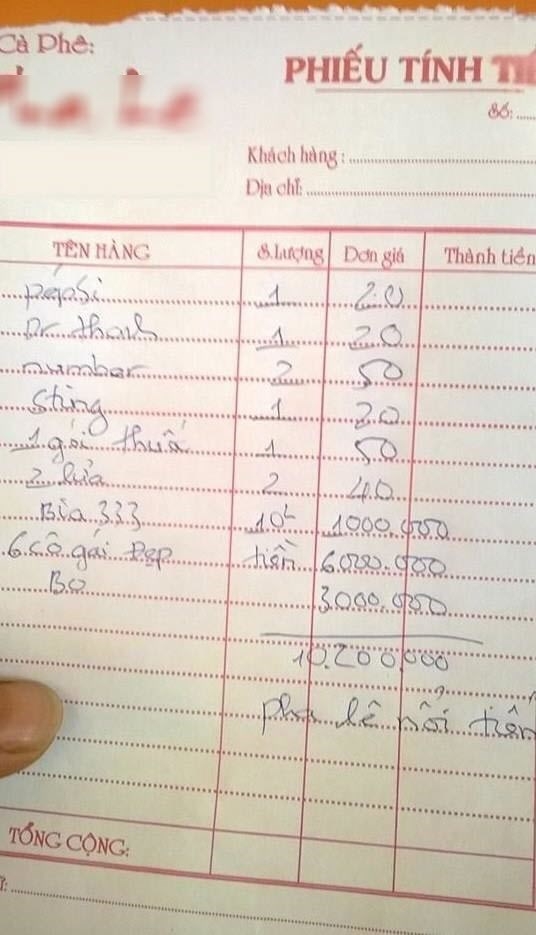 Cà Phê:
PHIẾU TÍNH TI
Số: ......
Khách hàng : ......
Địa chỉ: ......
TÊN HÀNG S.Lượng Đơn giá Thành tiền
pépsi 1 20
Dr thanh 1 20
number 2 50
Sting 1 20
1 gói thuố 1 50
2 lửa 2 40
Bia 333 10L 1000.000
6 cô gái Đẹp tiền 6000.000
Bo 3000.000
10.200.000
pha lê nôi tiến
TỔNG CỘNG: